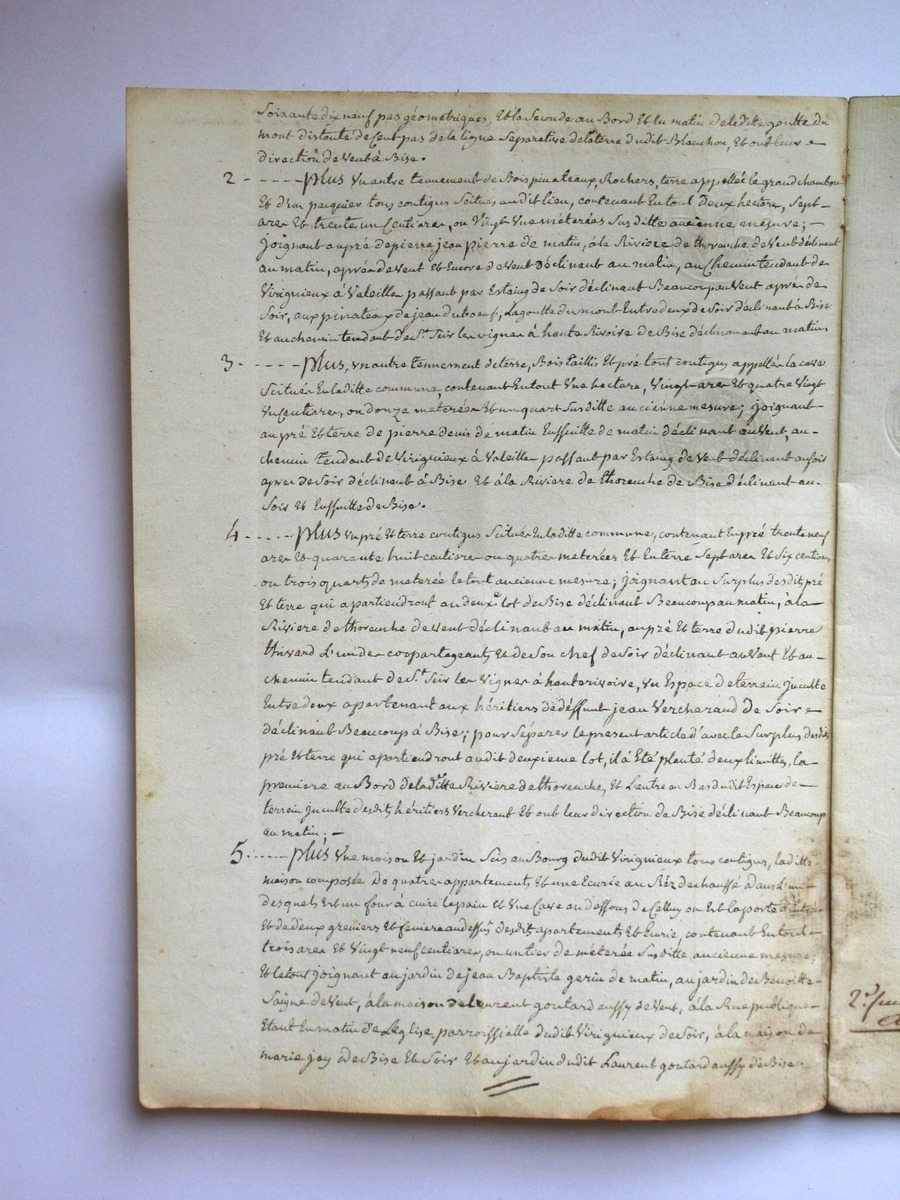 Soixante dix neuf pas géometriques, Et la Seconde au Bord Et du matin de la dite goutte du
mont distante de Cent pas de la ligne Separative de la terre dudit Blanchon, Et ont leur
direction de Vent à Bise.
2 - - - - - plus Un autre tennement de Bois pinateaux, Rochers, terre appellée le grand chambon
Et d'un paquier tous contigus Scitués audit lieu, contenant En tout Deux hectare, Sept
ares Et trente un Centiares, ou Vingt Une meterées Susditte ancienne mesure; -
Joignant au pré de pierre jean pierre de matin, à la Riviere de thoranche de Vent déclinant
au matin, au pré de Vent Et Encore de Vent Déclinant au matin, au Chemin tendant de
Virignieux à Valeille passant par Estaing de Soir déclinant Beaucoup au Vent aprés de
Soir, aux pinateaux de jean duboeuf, La goutte du mont Entre deux de Soir déclinant à Bise
Et au chemin tendant de St. Sir les vignes à haute Rivoire de Bise déclinant au matin,
3 - - - - - plus, un autre tennement de terre, Bois taillis Et pré tout contigus appellés la cave
Scitués En la ditte commune, contenant En tout Une hectare, Vingt ares Et quatre Vingt
Un Centiares, ou douze meterées Et un quart Susditte ancienne mesure; joignant
au pré Et terre de pierre denis de matin Ensuitte de matin déclinant au Vent, au
chemin tendant de Virignieux à Valeille passant par Estaing de Vent déclinant au soir
apres de Soir déclinant à Bise Et à la Riviere de thorenche de Bise déclinant au
Soir Et Ensuitte de Bise.
4 - - - - - plus un pré Et terre contigus Scitués En laditte commune, contenant En pré trente neuf
ares Et quarante huit centiares ou quatre meterées Et En terre Sept ares Et Six centiares
ou trois quarts de meterée le tout ancienne mesure; joignant au Surplus desdits pré
Et terre qui apartiendront au deuxe. lot de Bise déclinant Beaucoup au matin, à la
Riviere de thorenche de Vent déclinant au matin, au pré Et terre dudit pierre
thivard L'un des copartageants Et de Son chef de Soir déclinant au Vent Et au
chemin tendant de St. Sir les Vignes à hauterivoire, un Espace de terrein inculte
Entre deux apartenant aux héritiers de déffunt jean Vercherand de Soir
déclinant Beaucoup à Bise; pour Séparer le présent article d'avec le Surplus desdits
pré Et terre qui apartiendront audit deuxieme lot, il à Eté planté deux limittes, la
premiere au Bord de laditte Riviere de thorenche, Et L'autre au Bas dudit Espace de
terrein inculte desdits héritiers Vercherant Et ont leur direction de Bise déclinant Beaucoup
au matin; -
5 - - - - - plus Une maison Et jardin Scis au Bourg dudit Virignieux tous contigus, laditte
maison composée De quatre appartements Et une Ecurie au Réz de chaussé dans L'un
desquels Est un four à cuire le pain Et Une Cave au dessous de Celluy ou Est la porte d'Entrée
Et de deux greniers Et feniere au dessus desdits apartements Et Ecurie, contenant En tout
trois ares Et Vingt neuf centiares, ou un tier de meterée Susditte ancienne mesure;
Et le tous joignant au jardin de jean Baptiste gerin de matin, au jardin de Benoitte
Saigne de Vent, à la maison de Laurent goutard aussy de Vent, à la Rue publique
Etant En matin de L'eglise parroissialle dudit Virignieux de Soir, à la maison de
marie jay de Bise Et Soir Et au jardin dudit Laurent goutard aussy de Bise.